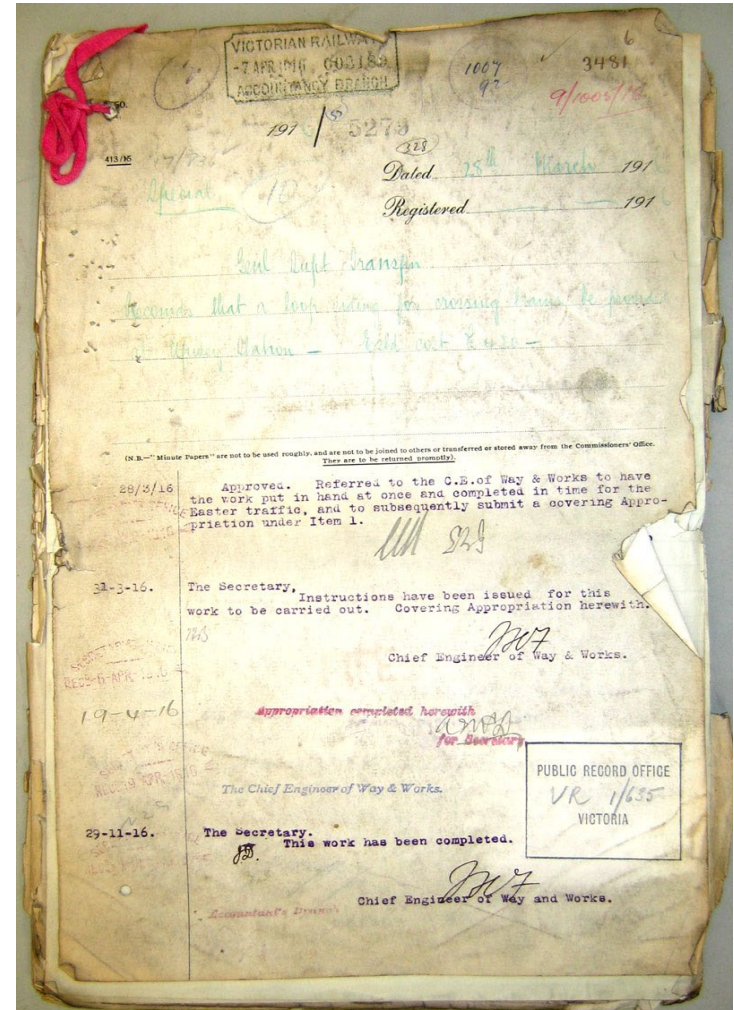 VICTORIAN RAILWAYS
-7 APR 1916 603189
ACCOUNTANCY BRANCH
1004
6
3481
191
5279
328
413/15
Dated 28th March 191
Special
10
Registered 191
Genl Supt Transpn
that a loop siding for crossing trains be provided
at Station — Estd cost £420 —
(N.B.—"Minute Papers" are not to be used roughly, and are not to be joined to others or transferred or stored away from the Commissioners' Office.
They are to be returned promptly).
28/3/16
Approved. Referred to the C.E.of Way & Works to have
the work put in hand at once and completed in time for the
Easter traffic, and to subsequently submit a covering Appro-
priation under Item 1.
31-3-16.
The Secretary,
Instructions have been issued for this
work to be carried out. Covering Appropriation herewith.
Chief Engineer of Way & Works.
19-4-16
Appropriation completed herewith
for Secretary
The Chief Engineer of Way & Works.
PUBLIC RECORD OFFICE
VR 1/635
VICTORIA
29-11-16.
The Secretary.
This work has been completed.
Chief Engineer of Way and Works.
Accountant's Branch